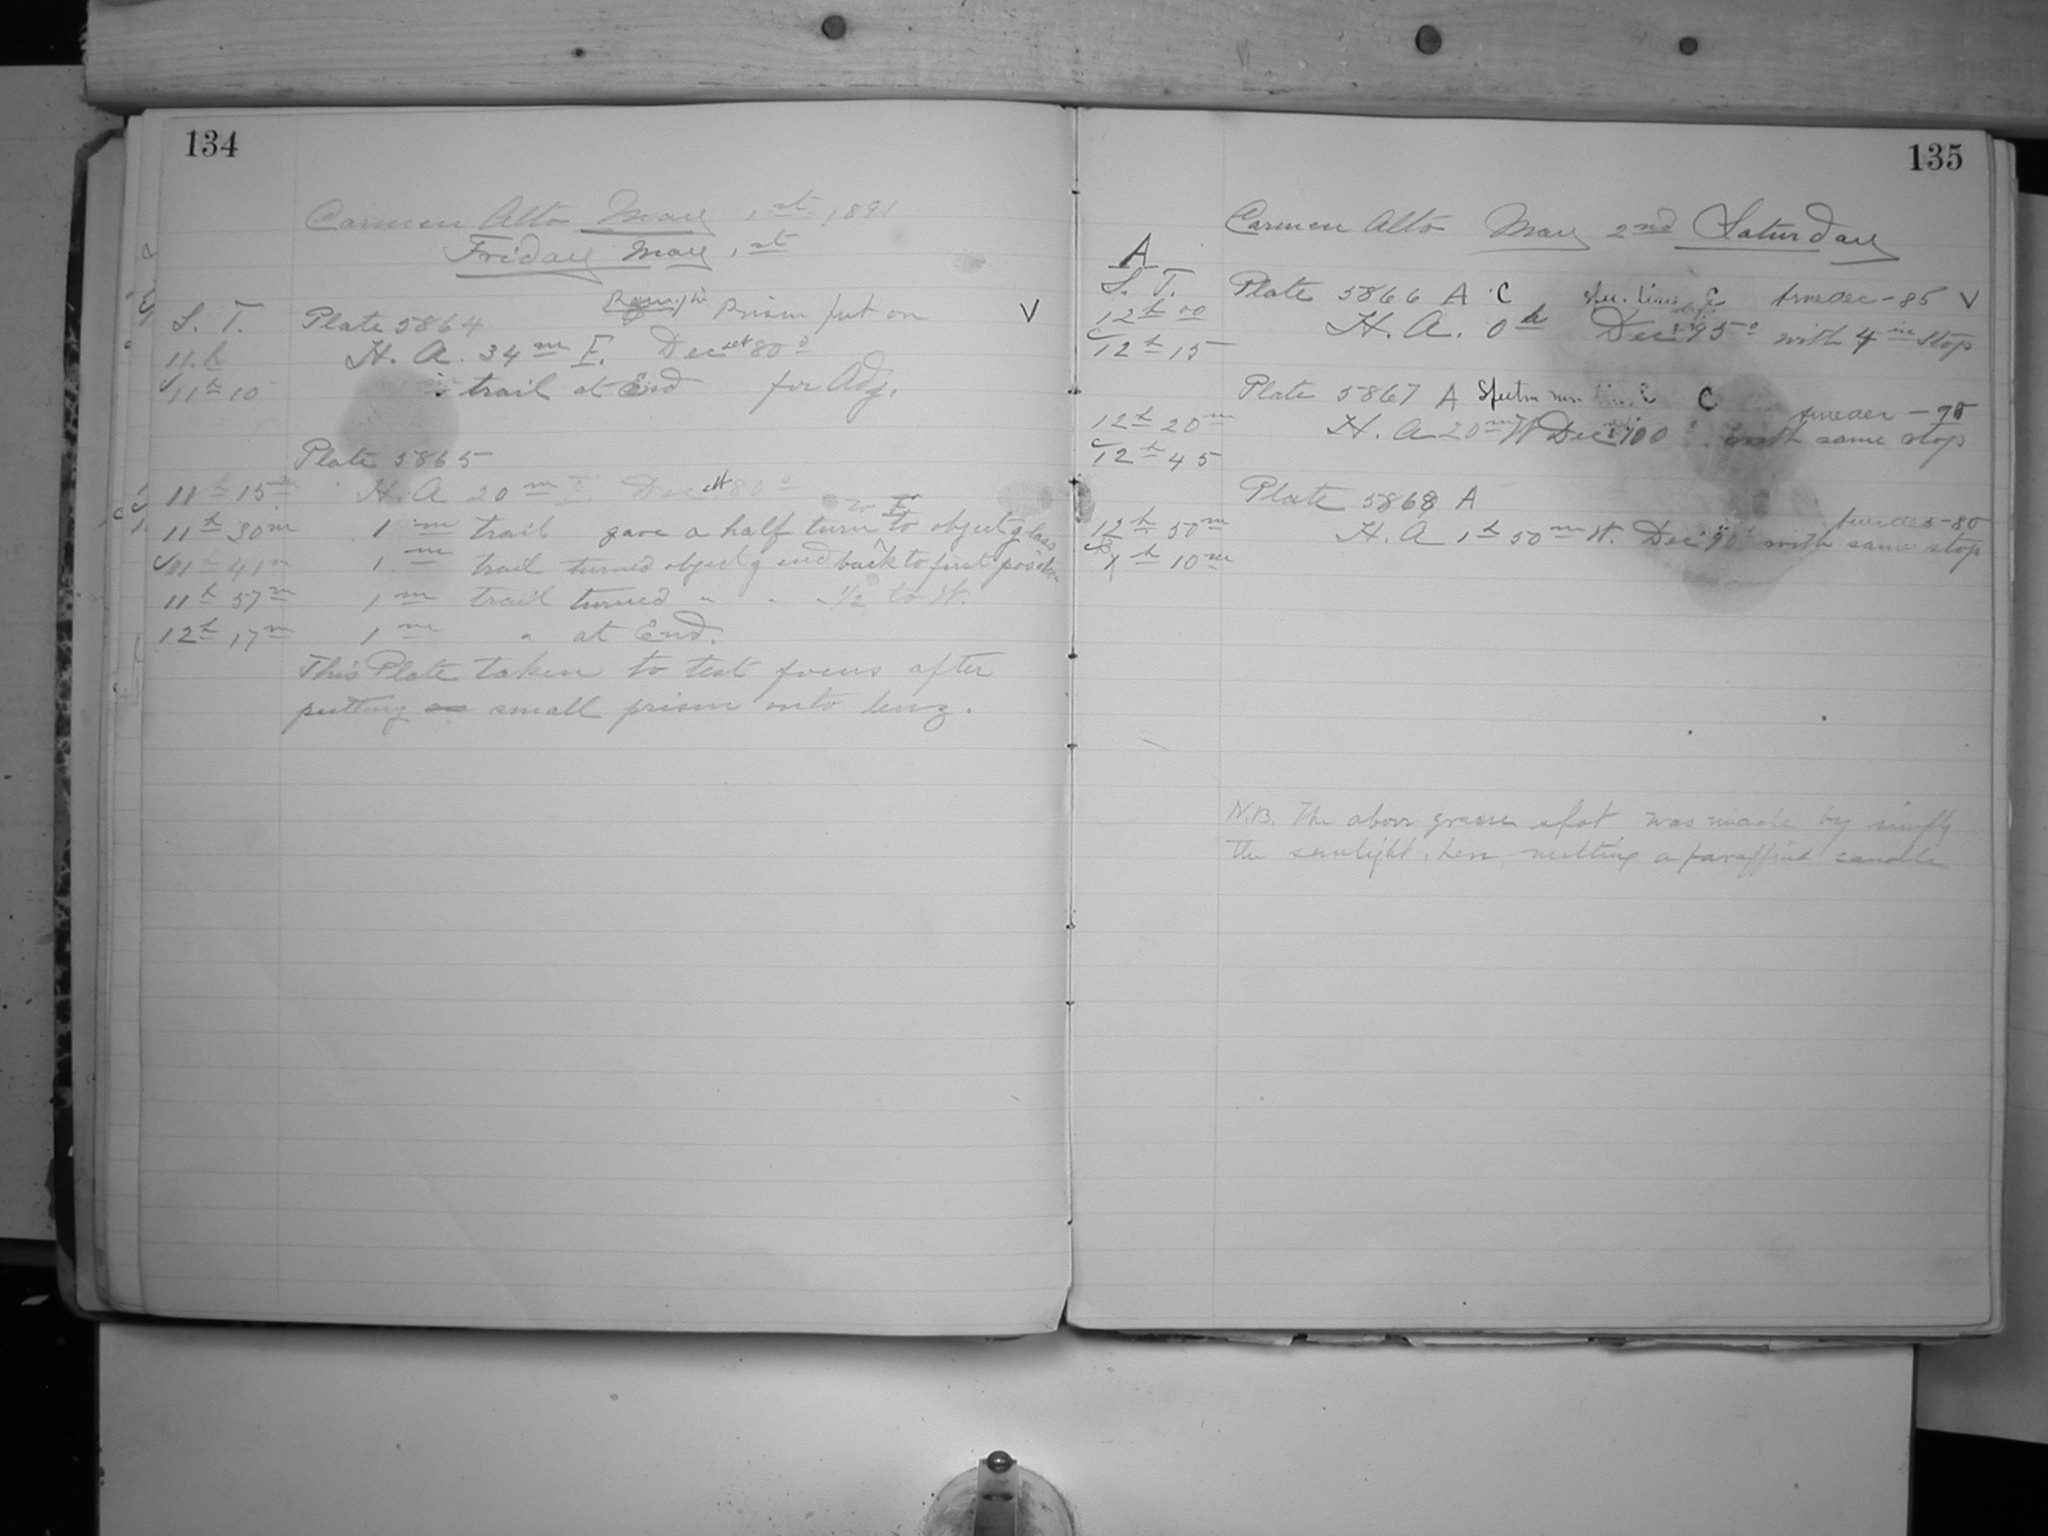 134
Carmen Alto May 1st 1891
Friday May 1st
S. T. Plate 5864 Prism put on V
11h H. A. 34m E. Dec set 80°
11h 10 trail at End for Adj.
Plate 5865
11h 15m H. A 20m E. Dec set 80°
to E
11h 30m 1m trail gave a half turn to object glass
11h 41m 1m trail turned object g end back to first position
11h 57m 1m trail turned " " " 1/2 to W.
12h 17m 1m " at End.
This Plate taken to test focus after
putting small prism onto lenz.
135
Carmen Alto May 2nd Saturday
A
S. T. Plate 5866 A C true dec - 85 V
12h 00 H. A. 0h Dec 95° with 4in stop
12h 15
Plate 5867 A Spectrum C true dec - 90
12h 20m H. A 20m W Dec 100° with same stop
12h 45
Plate 5868 A
true dec - 80
12h 50m H. A 1h 50m W. Dec 90° with same stop
1h 10m
N.B. The above grease spot was made by simply
the sunlight, here, melting a paraffine candle